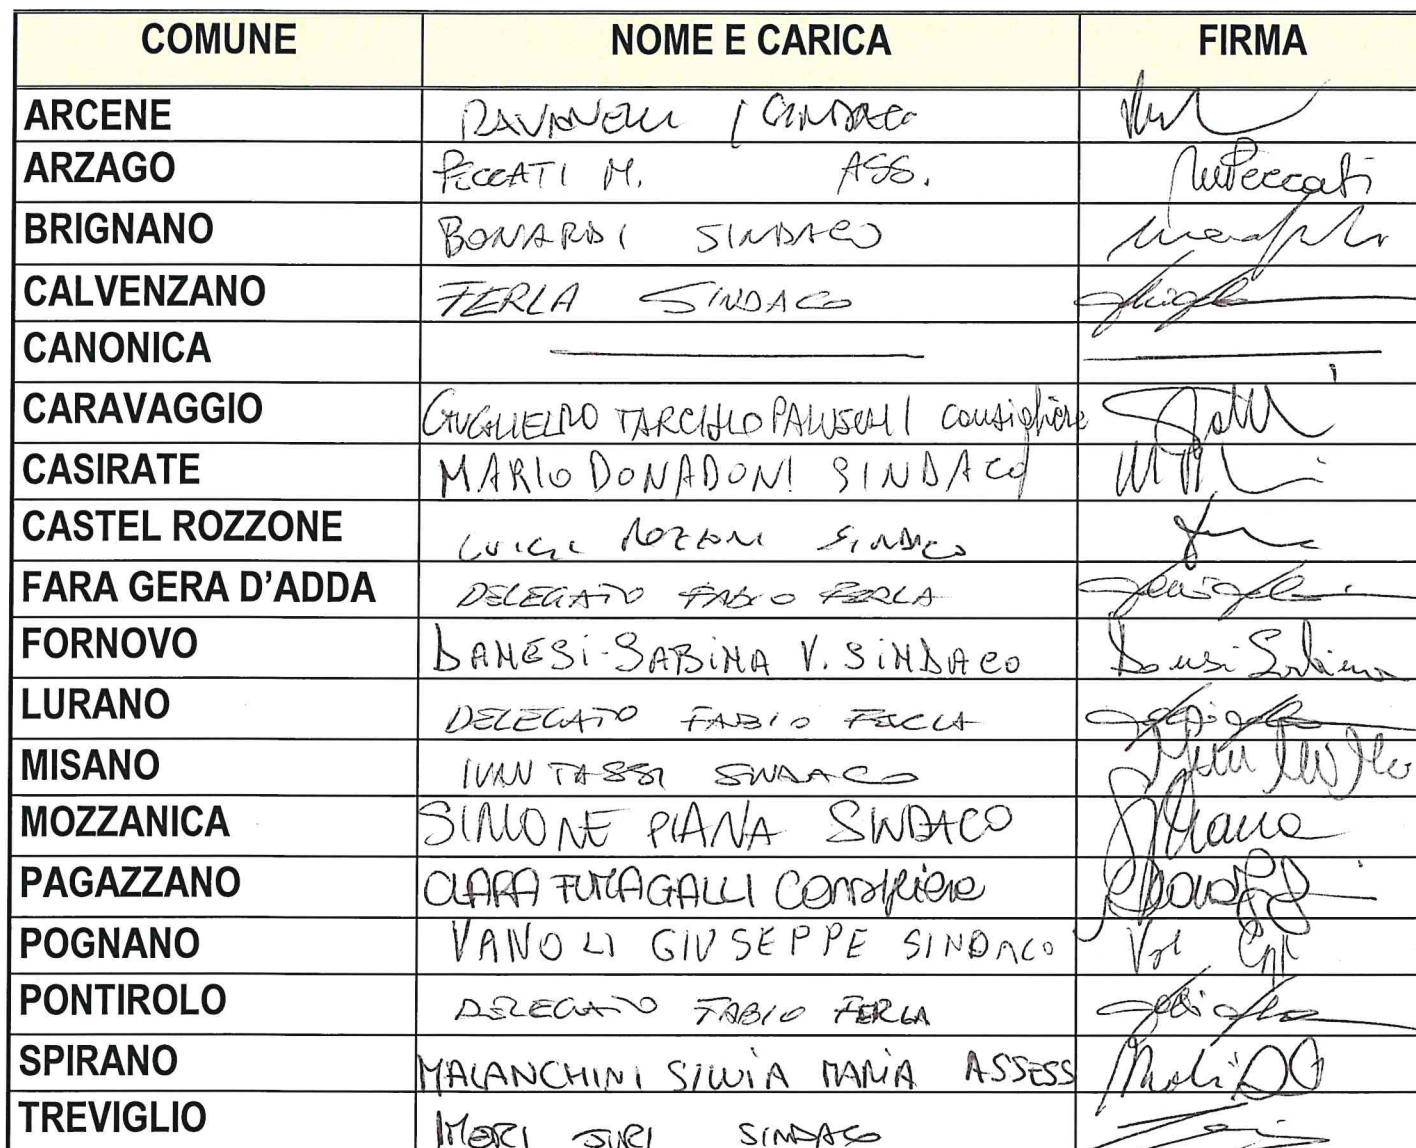 COMUNE NOME E CARICA FIRMA
ARCENE RAVANELLI / SINDACO
ARZAGO PECCATI M. ASS. M Peccati
BRIGNANO BONARDI SINDACO
CALVENZANO FERLA SINDACO
CANONICA
CARAVAGGIO GUGLIELMO TARCISIO consigliere
CASIRATE MARIO DONADONI SINDACO
CASTEL ROZZONE LUIGI ROZZONI SINDACO
FARA GERA D’ADDA DELEGATO FABIO FERLA
FORNOVO DANESI-SABINA V. SINDACO Danesi Sabina
LURANO DELEGATO FABIO FERLA
MISANO IVAN TASSI SINDACO
MOZZANICA SIMONE PIANA SINDACO SPiana
PAGAZZANO CLARA FUMAGALLI Consigliere
POGNANO VANOLI GIUSEPPE SINDACO
PONTIROLO DELEGATO FABIO FERLA
SPIRANO MALANCHINI SILVIA MARIA ASSESS
TREVIGLIO IMERI JURI SINDACO